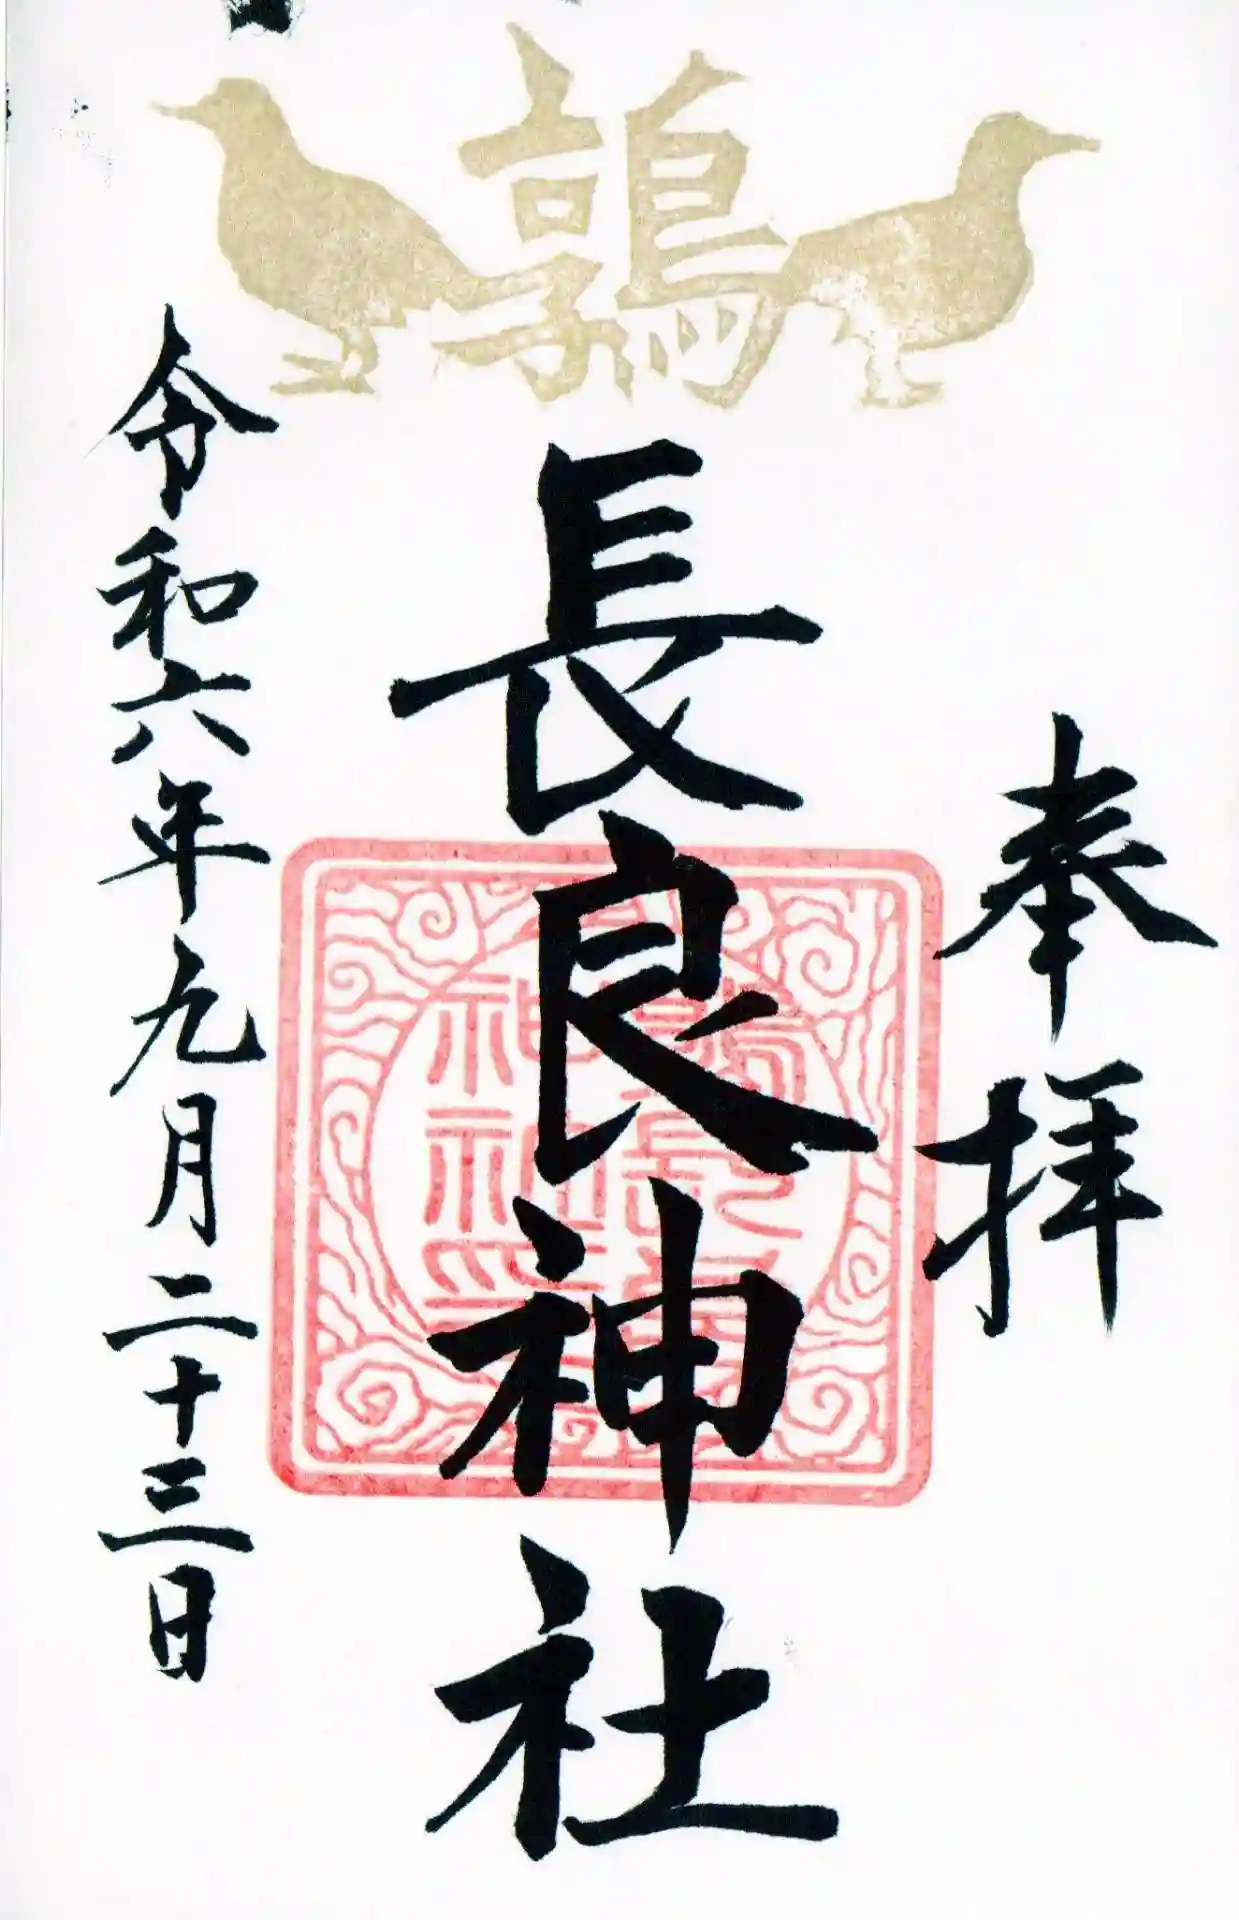 鶉
奉拝
長良神社
令和六年九月二十三日